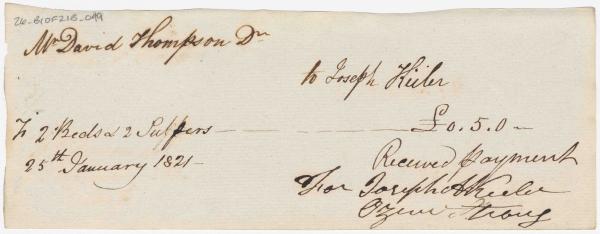 26-B10F21B-049
Mr David Thompson Dr
to Joseph Keeler
To 2 Beds & 2 Suppers — £0.5.0 —
25th January 1821 —
Received Payment
For Joseph A Keeler
Strong